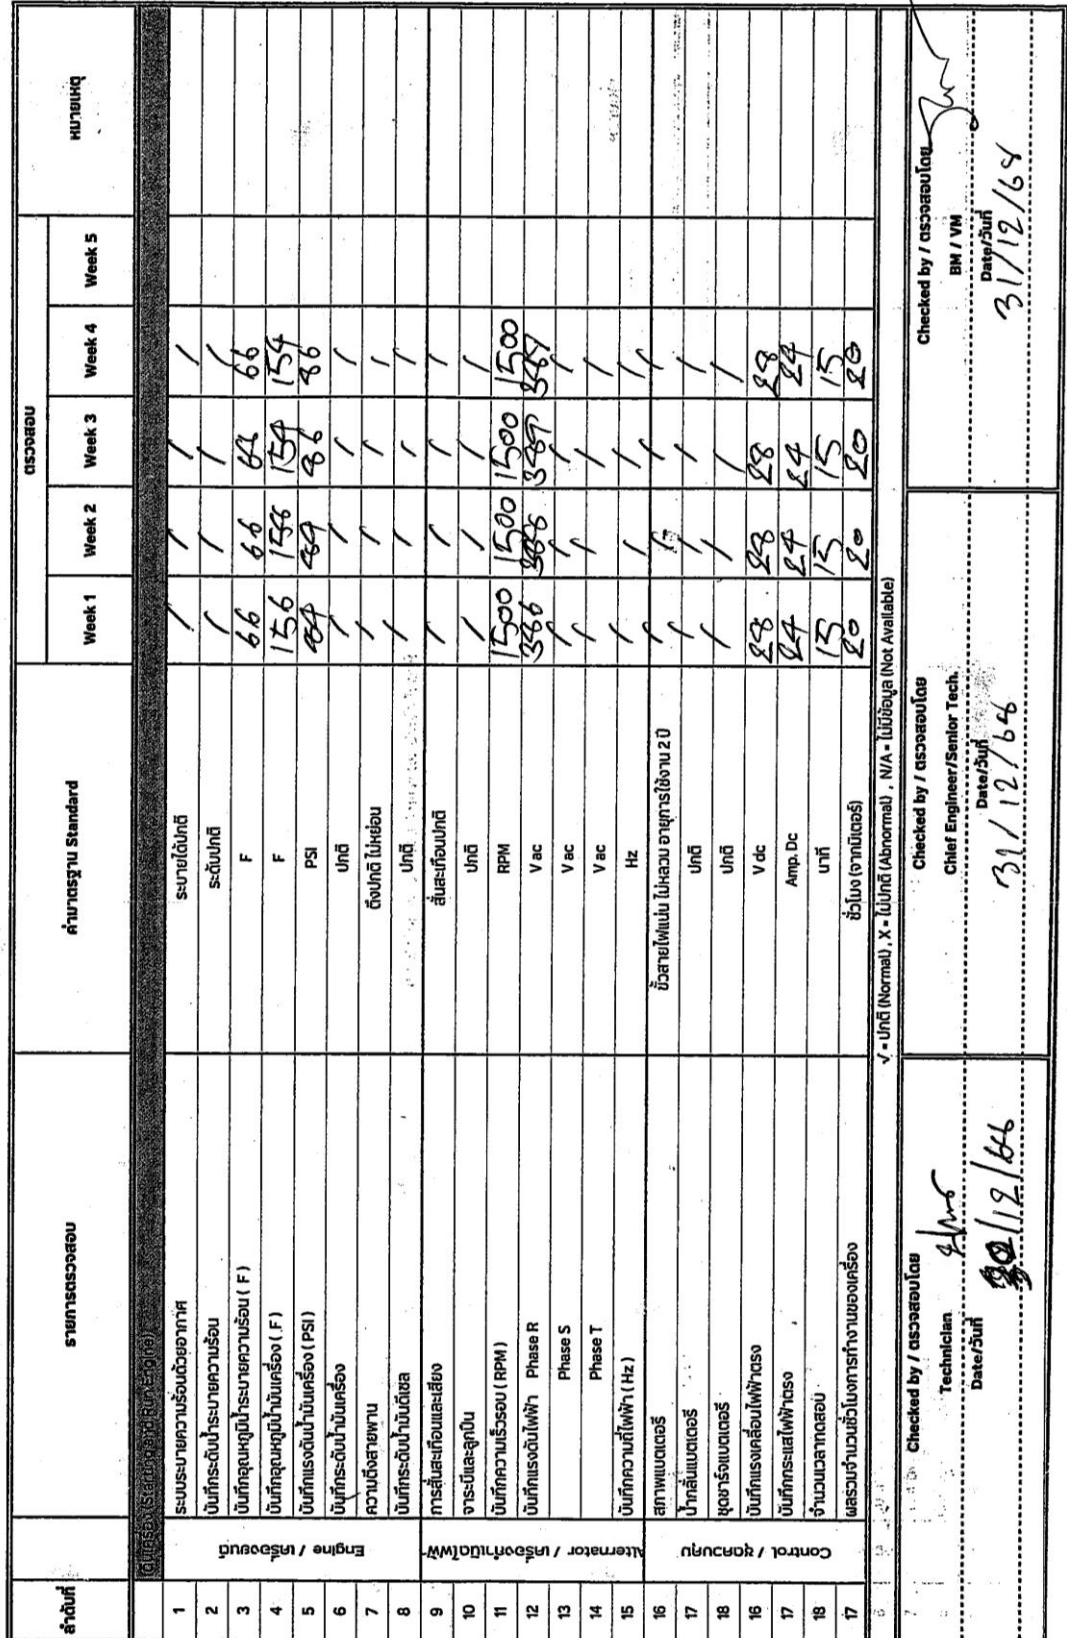 ลำดับที่ รายการตรวจสอบ ค่ามาตรฐาน Standard ตรวจสอบ หมายเหตุ
Week 1 Week 2 Week 3 Week 4 Week 5
(Starting and Run Engine)
Engine / เครื่องยนต์
1 ระบบระบายความร้อนด้วยอากาศ ระบายได้ปกติ / / / /
2 บันทึกระดับน้ำระบายความร้อน ระดับปกติ / / / /
3 บันทึกอุณหภูมิน้ำระบายความร้อน ( F ) F 66 66 66 66
4 บันทึกอุณหภูมิน้ำมันเครื่อง ( F ) F 156 154 154
5 บันทึกแรงดันน้ำมันเครื่อง (PSI) PSI
6 บันทึกระดับน้ำมันเครื่อง ปกติ / / / /
7 ความตึงสายพาน ตึงปกติ ไม่หย่อน / / / /
8 บันทึกระดับน้ำมันดีเซล ปกติ / / / /
Alternator / เครื่องกำเนิดไฟฟ้า
9 การสั่นสะเทือนและเสียง สั่นสะเทือนปกติ / / / /
10 จาระบีและลูกปืน ปกติ / / / /
11 บันทึกความเร็วรอบ ( RPM ) RPM 1500 1500 1500 1500
12 บันทึกแรงดันไฟฟ้า Phase R V ac
13 Phase S V ac / / / /
14 Phase T V ac / / / /
15 บันทึกความถี่ไฟฟ้า ( Hz ) Hz / / / /
Control / ชุดควบคุม
16 สภาพแบตเตอรี่ ขั้วสายไฟแน่น ไม่หลวม อายุการใช้งาน 2 ปี / / / /
17 น้ำกลั่นแบตเตอรี่ ปกติ / / / /
18 ชุดชาร์จแบตเตอรี่ ปกติ / / / /
16 บันทึกแรงเคลื่อนไฟฟ้าตรง V dc 28 28 28 28
17 บันทึกกระแสไฟฟ้าตรง Amp. Dc 24 24 24 24
18 จำนวนเวลาทดสอบ นาที 15 15 15 15
17 ผลรวมจำนวนชั่วโมงการทำงานของเครื่อง ชั่วโมง (จากมิเตอร์) 20 20 20 20
√ = ปกติ (Normal) , X = ไม่ปกติ (Abnormal) , N/A = ไม่มีข้อมูล (Not Available)
Checked by / ตรวจสอบโดย
Technician
Date/วันที่
Checked by / ตรวจสอบโดย
Chief Engineer/Senior Tech.
Date/วันที่
31/12/68
Checked by / ตรวจสอบโดย
BM / VM
Date/วันที่
31/12/68